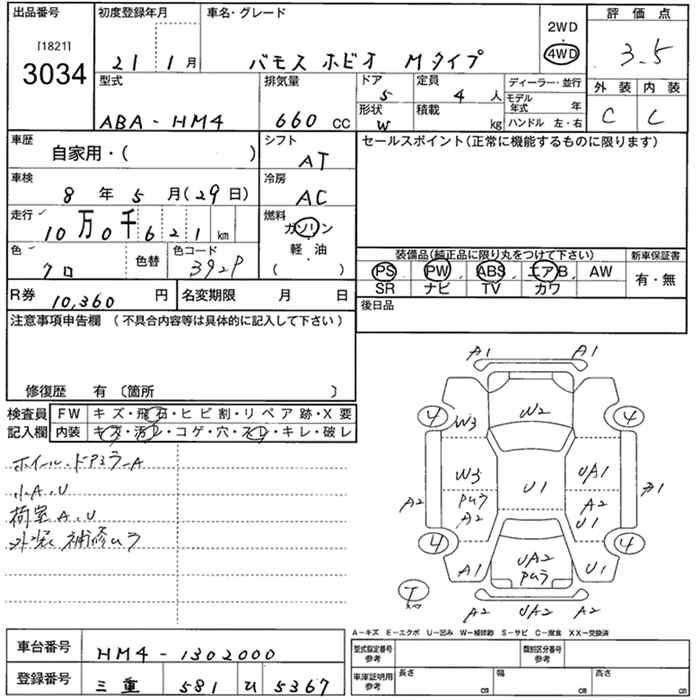 出品番号 初度登録年月 車名・グレード 2WD 評価点
[1821]
3034
21 1月 バモス ホビオ Mタイプ 4WD 3.5
型式 排気量 ドア 定員 ディーラー・並行 外装 内装
5 4 人 モデル年式 年 C C
形状 積載
ABA-HM4 660 CC W kg ハンドル 左・右
車歴 シフト セールスポイント(正常に機能するものに限ります)
自家用・( ) AT
車検 冷房
8 年 5 月(29日) AC
走行 燃料
10万0千621km ガソリン
色 色替 色コード 軽・油 装備品(純正品に限り丸をつけて下さい) 新車保証書
クロ 392P ( ) PS PW ABS エアB AW 有・無
SR ナビ TV カワ
R券 10,360 円 名変期限 月 日 後日品
注意事項申告欄 (不具合内容等は具体的に記入して下さい)
修復歴 有 〔箇所 〕
検査員 FW キズ・飛石・ヒビ割・リペア跡・X要
記入欄 内装 キズ・汚レ・コゲ・穴・スレ・キレ・破レ
ホイール・ドアミラーA
小A.U
荷室A.U
外装 補修ムラ
A1 A1
4 W2 4
W3
W3 U1 UA1
A2 ムラ A2 A2 U1 A1
4 4
A1 UA2 U1
ムラ
T
A2 UA2 A2
A-キズ E-エクボ U-凹み W-補修跡 S-サビ C-腐食 XX-交換済
車台番号 HM4-1302000 型式指定番号 参考 類別区分番号 参考
登録番号 三重 581 ひ 5367 車庫証明用 参考 長さ cm 幅 cm 高さ cm